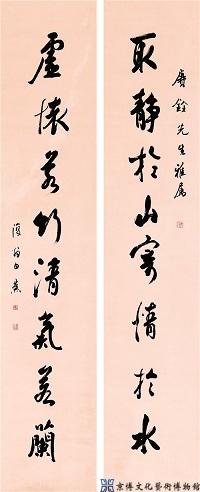 賡銓先生雅属
取静於山寄情於水
虛懷若竹清氣若蘭
復翁白蕉
京博文化藝術博物馆